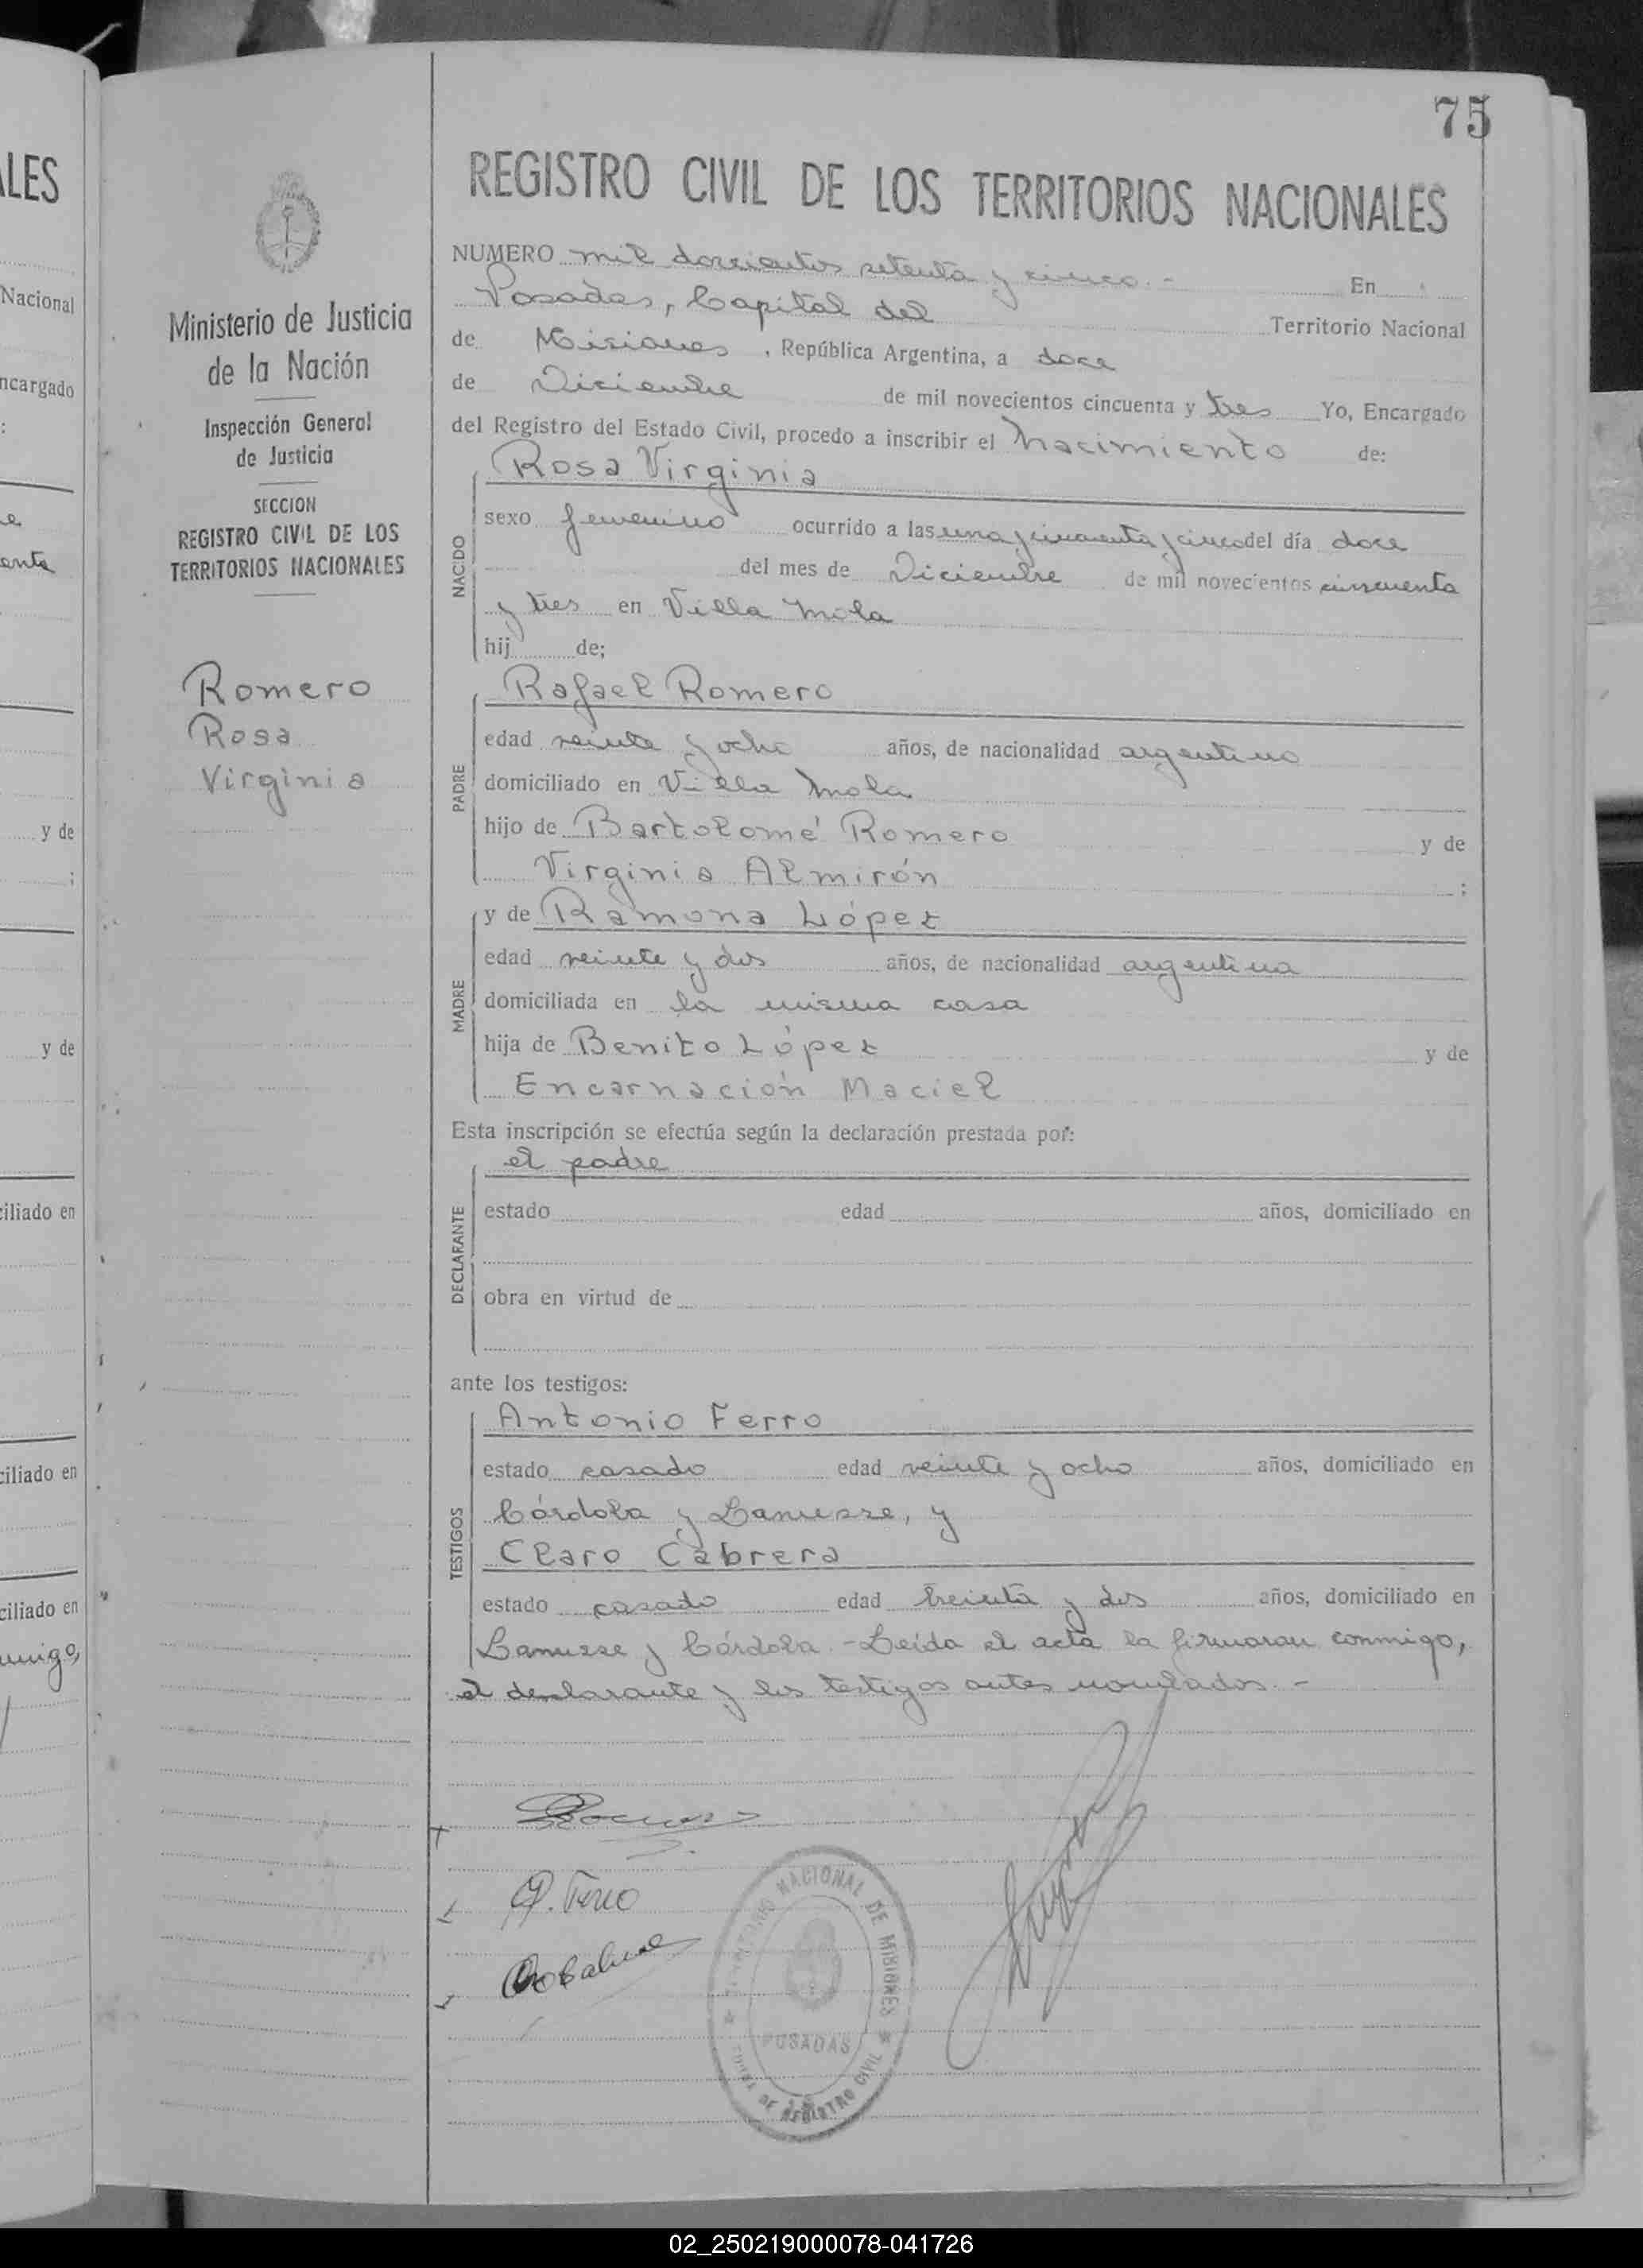 75
ALES
Nacional
ncargado
:
e
enta
y de
;
y de
ciliado en
ciliado en
ciliado en
migo,
Ministerio de Justicia
de la Nación
Inspección General
de Justicia
SECCION
REGISTRO CIVIL DE LOS
TERRITORIOS NACIONALES
Romero
Rosa
Virginia
REGISTRO CIVIL DE LOS TERRITORIOS NACIONALES
NUMERO mil doscientos setenta y cinco.- En
Posadas, Capital del Territorio Nacional
de Misiones, República Argentina, a doce
de Diciembre de mil novecientos cincuenta y tres Yo, Encargado
del Registro del Estado Civil, procedo a inscribir el Nacimiento de:
Rosa Virginia
NACIDO
sexo femenino ocurrido a las una y cincuenta y cinco del día doce
del mes de Diciembre de mil novecientos cincuenta
y tres en Villa Mola
hij de;
Rafael Romero
PADRE
edad veinte y ocho años, de nacionalidad argentino
domiciliado en Villa Mola
hijo de Bartolomé Romero y de
Virginia Almirón ;
y de Ramona López
MADRE
edad veinte y dos años, de nacionalidad argentina
domiciliada en la misma casa
hija de Benito López y de
Encarnación Maciel
Esta inscripción se efectúa según la declaración prestada por:
el padre
DECLARANTE
estado edad años, domiciliado en
obra en virtud de
ante los testigos:
Antonio Ferro
TESTIGOS
estado casado edad veinte y ocho años, domiciliado en
Córdoba y Lanusse, y
Claro Cabrera
estado casado edad treinta y dos años, domiciliado en
Lanusse y Córdoba.-Leída el acta la firmaron conmigo,
el declarante y los testigos antes nombrados.-
A. Ferro
TERRITORIO NACIONAL DE MISIONES
POSADAS
DE REGISTRO CIVIL
02_250219000078-041726